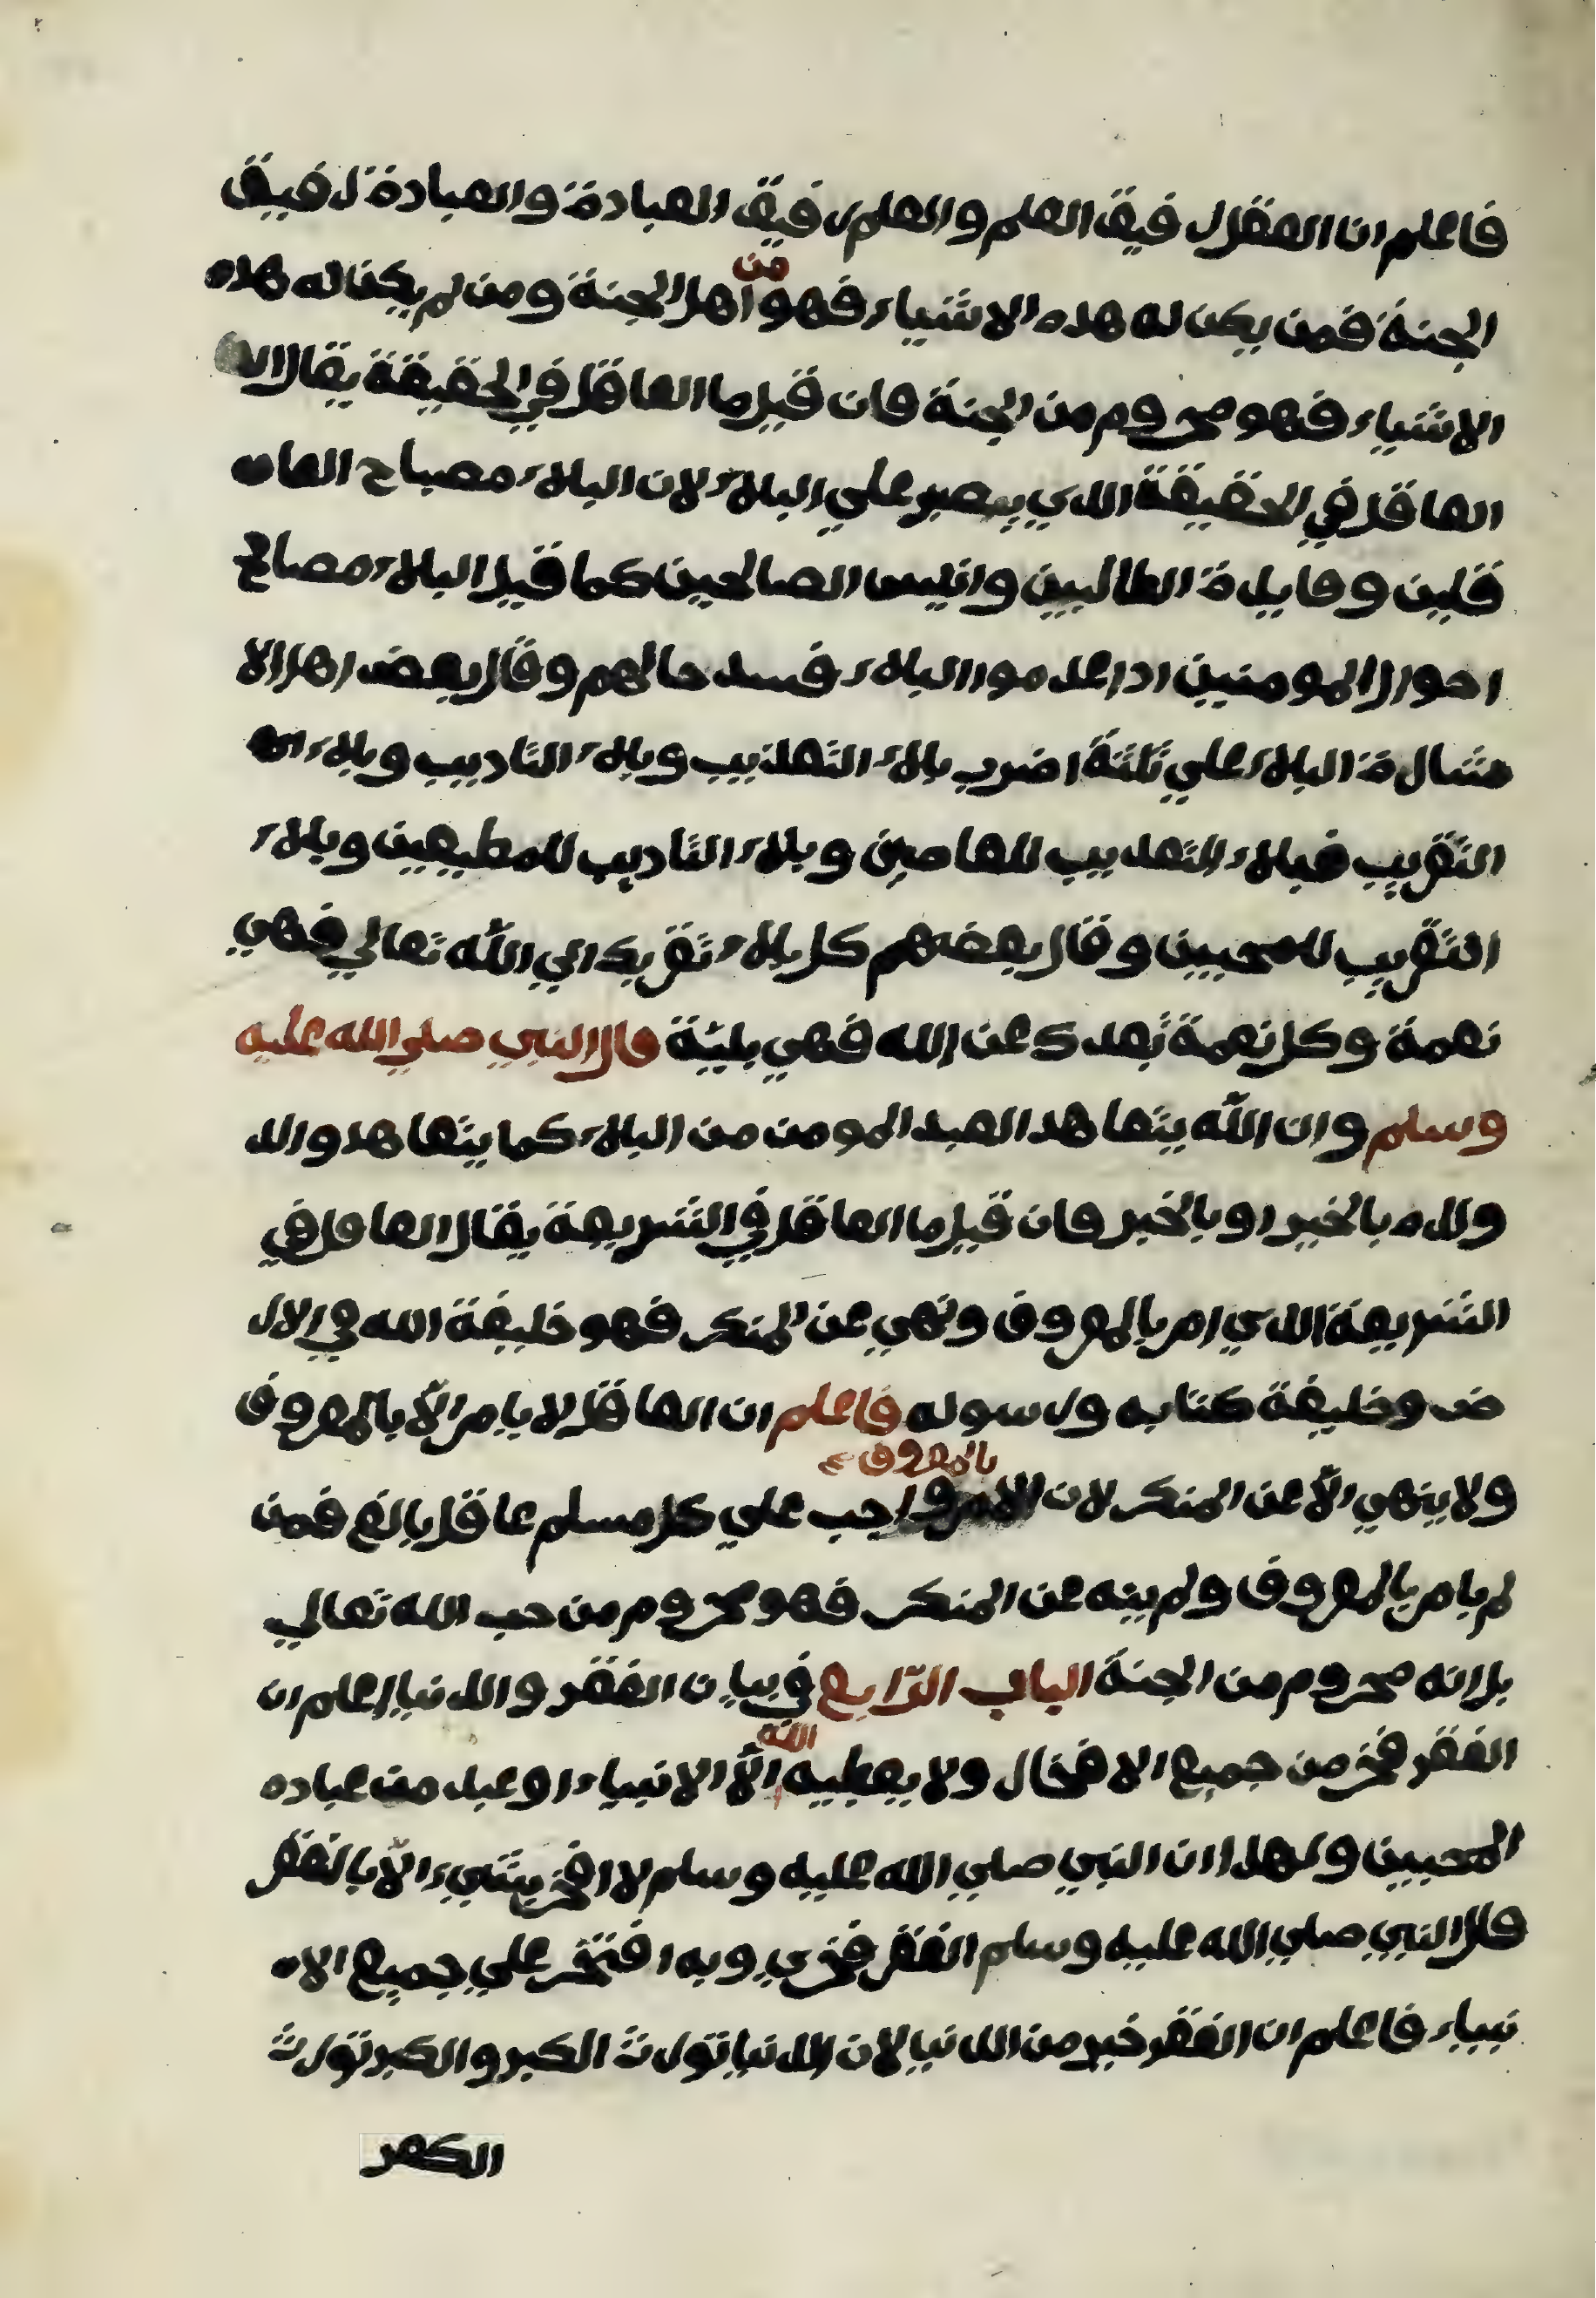 فاعلم ان العقل رفيق العلم والعلم رفيق العبادة والعبادة رفيق
الجنة فمن يكن له هذه الاشياء فهو من اهل الجنة ومن لم يكن له هذه
الاشياء فهو محروم من الجنة فان قيل ما العاقل في الحقيقة يقال
العاقل في الحقيقة الذي يصبر علي البلاء لان البلاء مصباح العا
قلين وفايدة الطالبين وانيس الصالحين كما قيل البلاء مصالح
احوال المومنين اذا عدموا البلاء فسد حالهم وقال بعض اهل الا
شارة البلاء علي ثلثة اضرب بلاء التعذيب وبلاء التاديب وبلاء
التقريب فبلاء التعذيب للعاصين وبلاء التاديب للمطيعين وبلاء
التقريب للمحبين وقال بعضهم كل بلاء تقربك الي الله تعالي فهي
نعمة وكل نعمة تبعدك عن الله فهي بليّة قال النبي صلي الله عليه
وسلم وان الله يتعاهد العبد المومن من البلاء كما يتعاهد والد
ولده بالخير او بالخبر فان قيل ما العاقل في الشريعة يقال العاقل في
الشريعة الذي امر بالمعروف ونهي عن المنكر فهو خليفة الله في الار
ض وخليفة كتابه ورسوله فاعلم ان العاقل لا يامر الّا بالمعروف
ولا ينهي الّا عن المنكر لان الامر بالمعروف واجب علي كل مسلم عاقل بالغ فمن
لم يامر بالمعروف ولم ينه عن المنكر فهو محروم من حب الله تعالي
بل انه محروم من الجنة الباب الرّابع في بيان الفقر والدنيا اعلم ان
الفقر فخر من جميع الافخار ولا يعطيه الله الّا الانبياء او عبد من عباده
المحبين ولهذا ان النبي صلي الله عليه وسلم لا افخر بشيء الّا بالفقر
قال النبي صلي الله عليه وسلم الفقر فخري وبه افتخر علي جميع الا
نبياء فاعلم ان الفقر خير من الدنيا لان الدنيا تورث الكبر والكبر تورث
الكفر